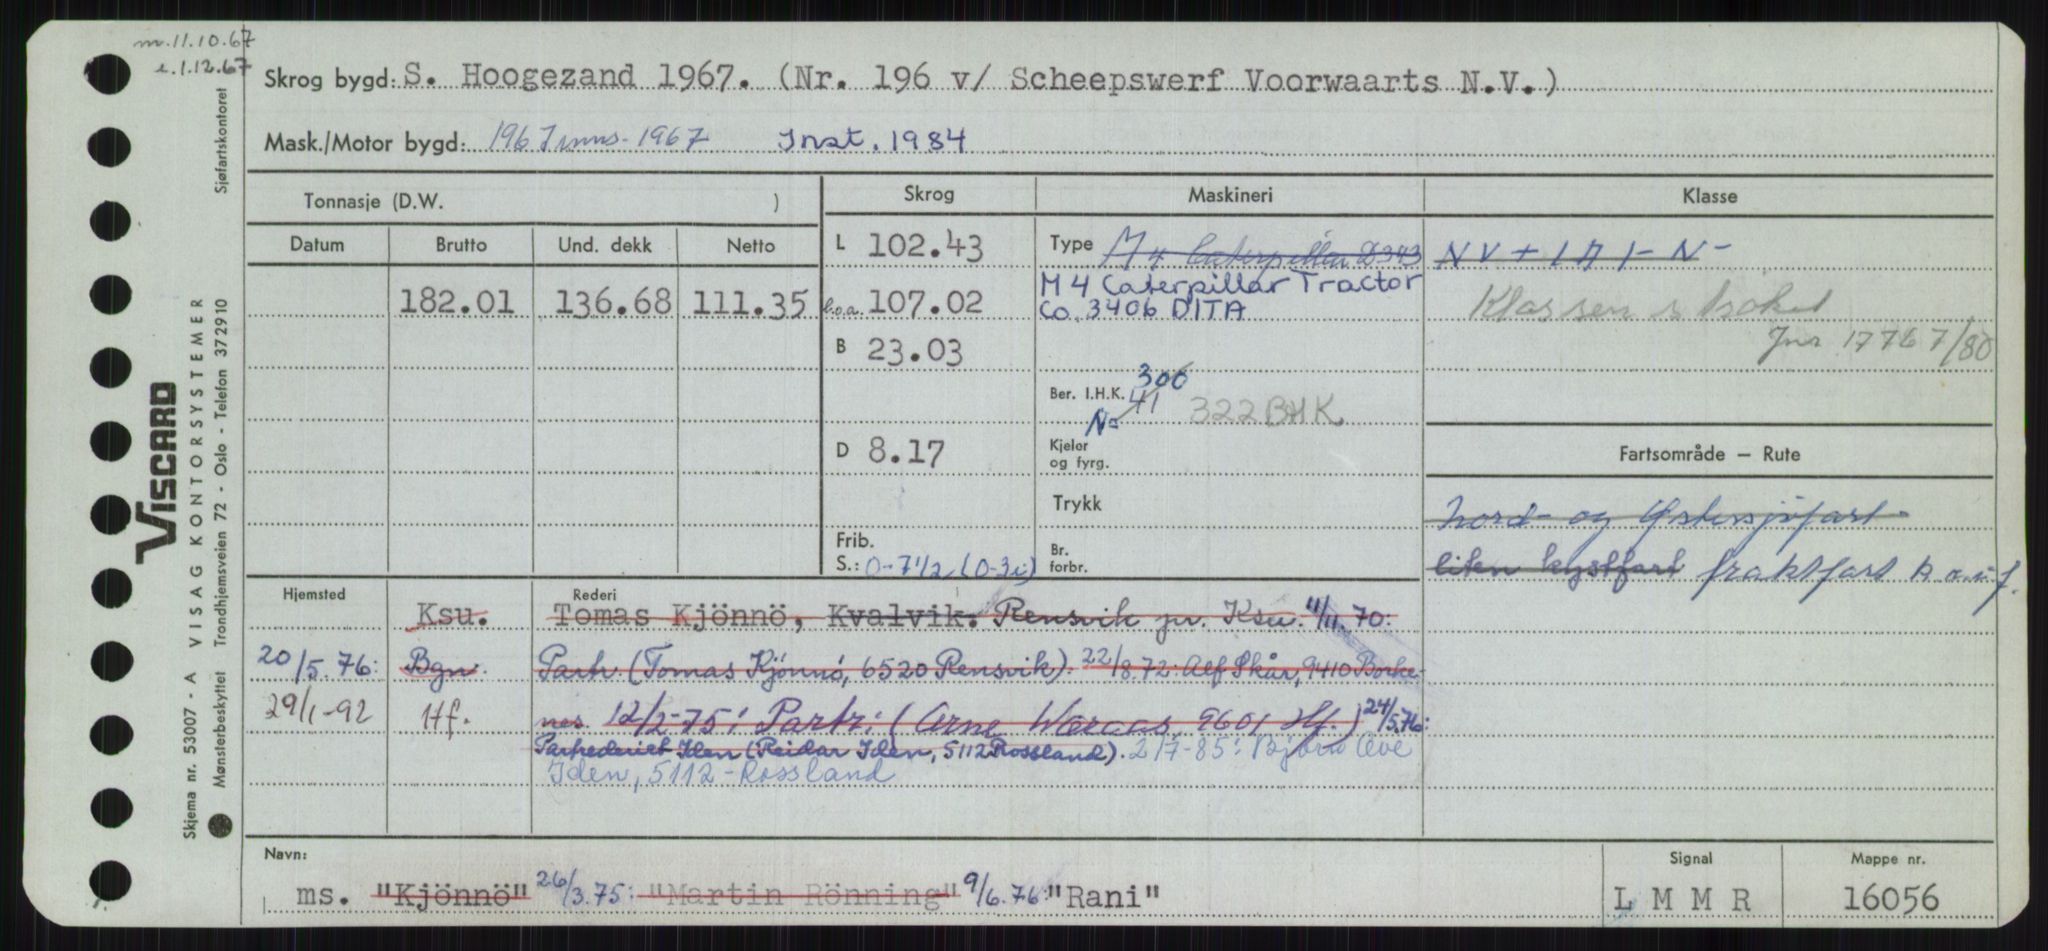 m. 11.10.67
e. 1.12.67
Skrog bygd: S. Hoogezand 1967. (Nr. 196 v/ Scheepswerf Voorwaarts N.V.)
Mask./Motor bygd: 1967 inns. 1967 Inst. 1984
Tonnasje (D.W. ) Skrog Maskineri Klasse
Datum Brutto Und. dekk Netto L 102.43 Type M 4 Caterpillar D343 NV + 1A1 - N -
182.01 136.68 111.35 l.o.a. 107.02 M 4 Caterpillar Tractor
Co. 3406 DITA
Klassen
Jnr 17767/80
B 23.03
300
Ber. I.H.K. 41 322 BHK
N=
D 8.17 Kjeler
og fyrg.
Fartsområde — Rute
Trykk Nord- og Østersjøfart -
Frib.
S.: 0-7 1/2 (0-3i) Br.
forbr. liten kystfart fraktfart
Hjemsted Rederi
Ksu. Tomas Kjönnö, Kvalvik. Rensvik pr. Ksu. 11/11.70:
20/5.76: Bgn. Partr. (Tomas Kjönnö, 6520 Rensvik). 22/8.72: Alf Skår, 9410 Borke-
29/1-92 Hf. nes. 12/2-75: Partr: (Arne Wæraas, 9601 Hf.) 24/5.76:
Partrederiet Iden (Reidar Iden, 5112 Rossland). 2/7-85: Bjørn Ove
Iden, 5112 - Rossland
Navn: Signal Mappe nr.
ms. "Kjönnö" 26/3.75: "Martin Rönning" 9/6.76: "Rani" L M M R 16056
Skjema nr. 53007 - A VISAG KONTORSYSTEMER Sjøfartskontoret
VISCARD
Mønsterbeskyttet Trondhjemsveien 72 - Oslo - Telefon 372910